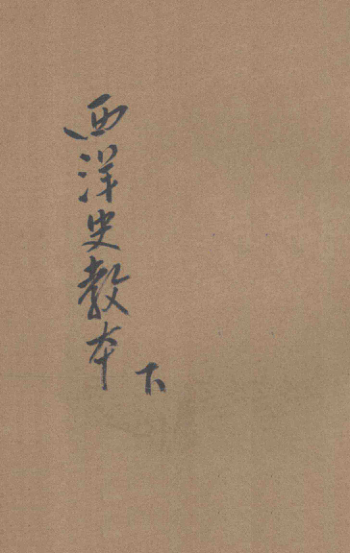 西洋史教本
下